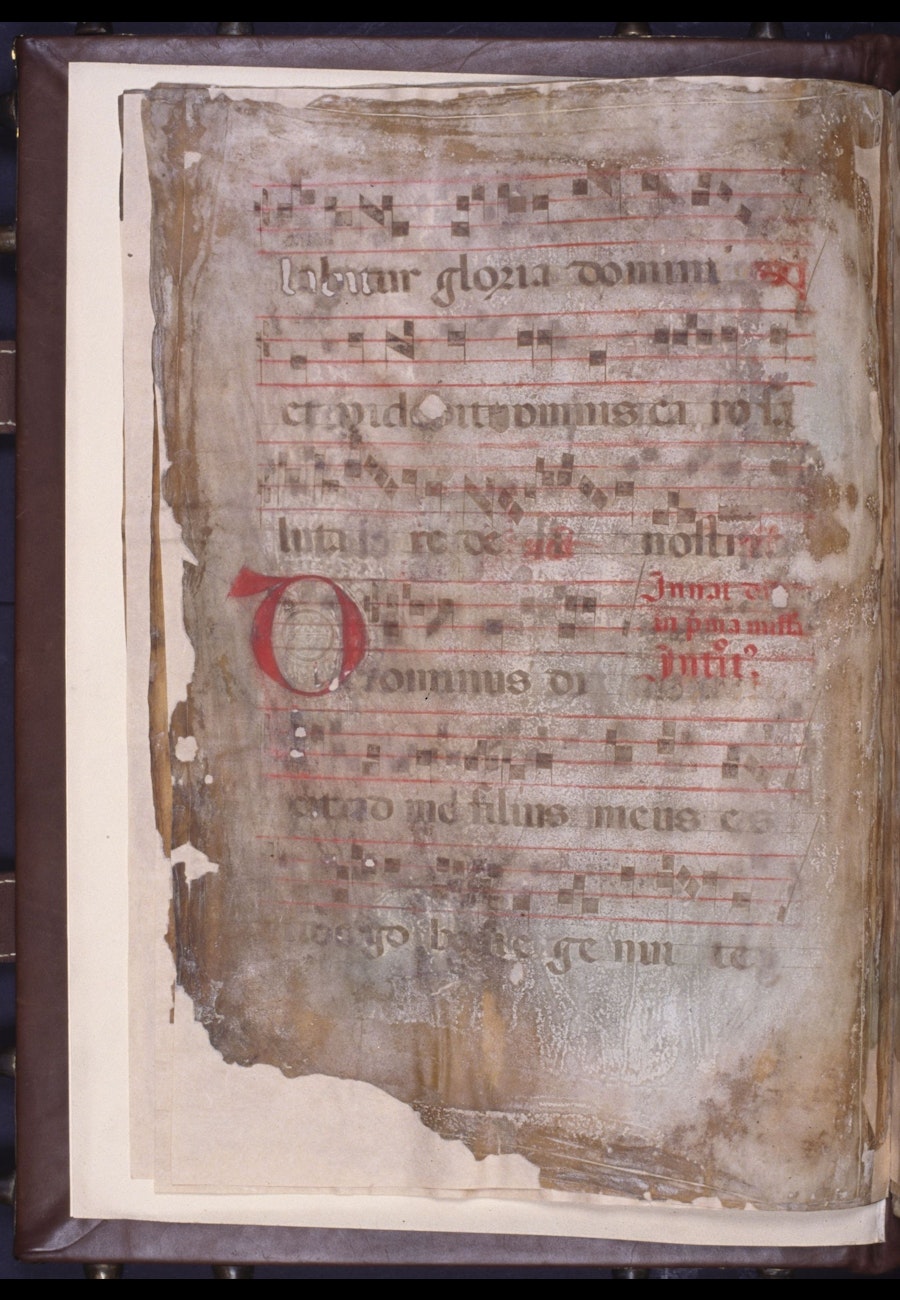 labitur gloria domini
et videbit omnis ca ro sa
luta re de i nostri
In nat do
in p̄ma missa
Introit⁹
Dominus di
xit ad me filius meus es
tu ego ho die ge nui te